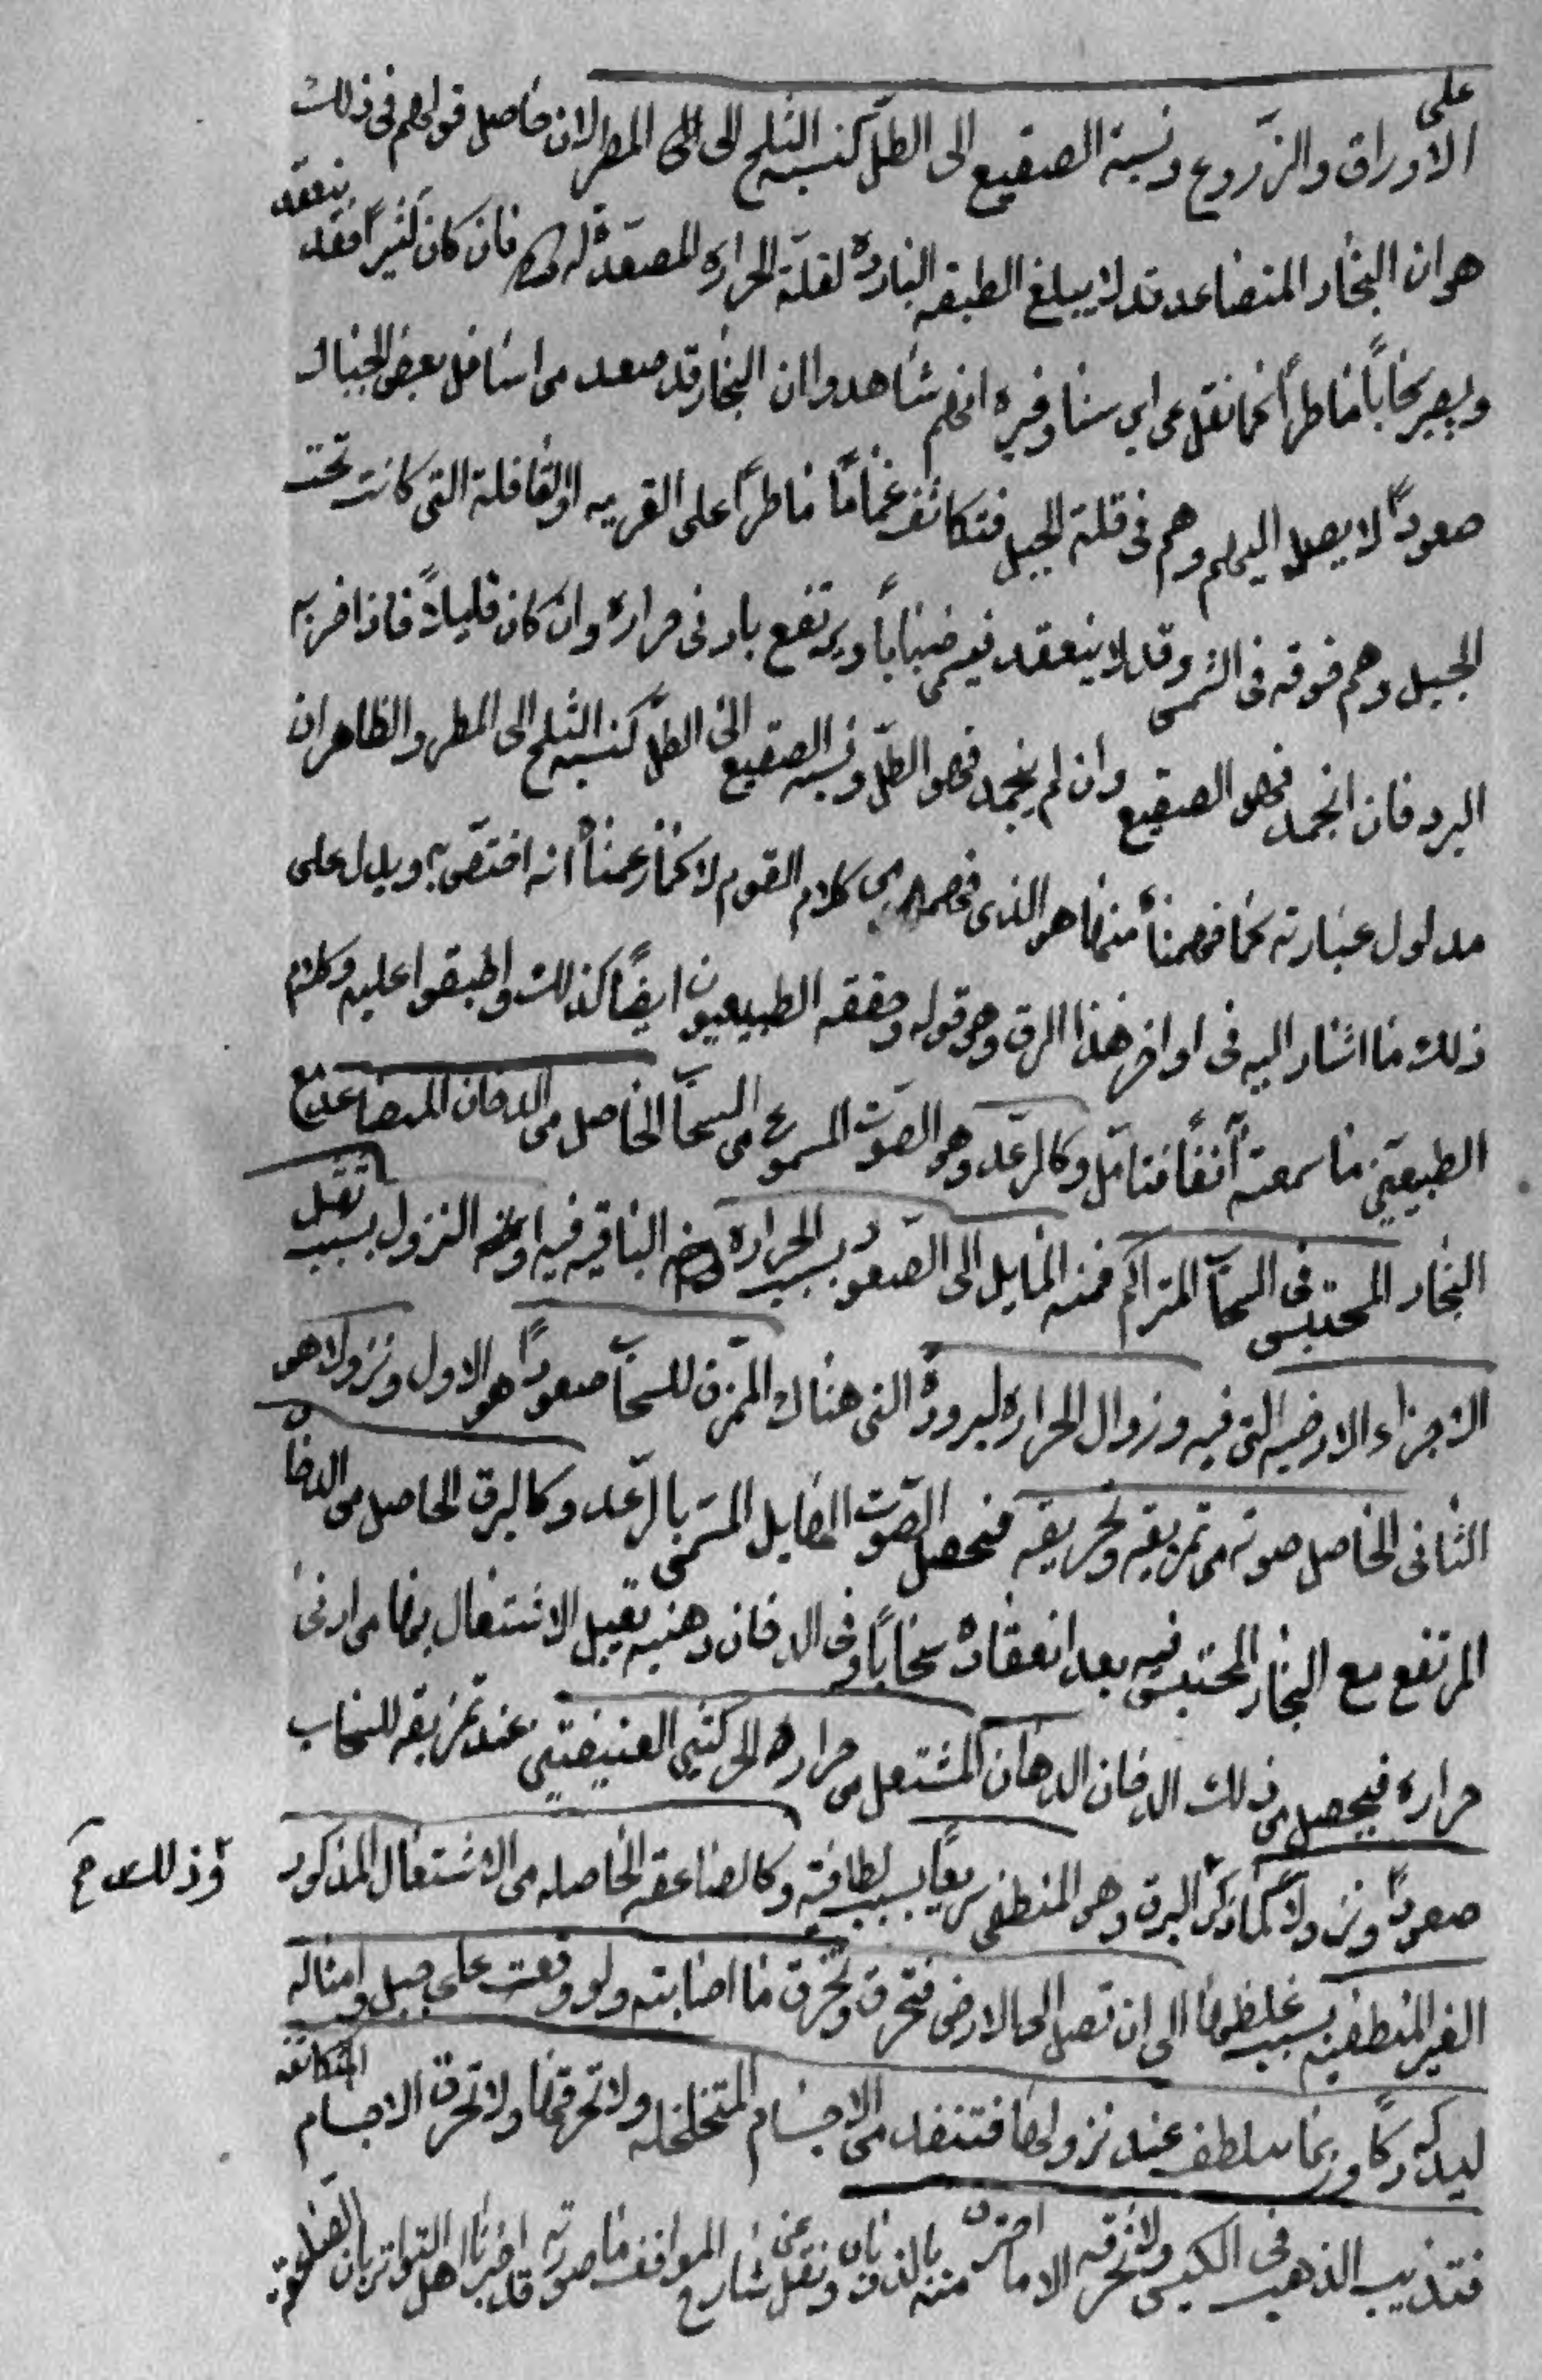 على
الاوراق والزروع ونسبة الصقيع الى الطلّ كنسبة الثلج الى المطر لان حاصل قولهم فى ذلك
هو ان البخار المتصاعد قد لا يبلغ الطبقه الباردة لقلة الحرارة المصعدة له فان كان كثيراً فقد ينعقد
ويصير سحاباً ماطراً كما نقل عن ابي سينا وغيره انهم شاهدوا ان البخار قد صعد من اسافل بعض الجبال
صعوداً لا يصل اليهم وهم فى قلة الجبل فتكاثف غماماً ماطراً على القريه او القافلة التى كانت تحت
الجبل وهم فوقه فى الشمس وقد لا ينعقد فيسمى ضباباً ويرتفع بادنى حراره وان كان قليلاً فاذا ضربه
البرد فان انجمد فهو الصقيع وان لم ينجمد فهو الطلّ ونسبه الصقيع الى الطلّ كنسبه الثلج الى المطر والظاهر ان
مدلول عبارته كما فهمناه منها هو الذى من كلام القوم لا كما زعمناه انه اختص به ويدل على
ذلك ما اشار اليه فى اواخر هذا الرق وهو قوله وحققه الطبيعيون ايضاً كذلك واطبقوا عليه وكلام
الطبيعيّين ما سمعته آنفاً فتامّل وكالرعد وهو الصوت المسموع من السحاب الحاصل من الدخان المتصاعد مع
البخار المحتبس فى السحاب المتراكم فمنه المايل الى الصعود بسبب الحراره الباقيه فيه او النزول بسبب ثقل
الاجزاء الارضيه التى فيه وزوال الحراره لبرودة التى هناك الممزق للسحاب صعوداً هو الاول ونزولا هو
الثانى الحاصل صوته من تمزيقه وتحريقه فيحصل الصوت الهايل المسمى بالرّعد وكالبرق الحاصل من الدخان
المرتفع مع البخار المحتبس فيه بعد انعقاده سحاباً وفى الدخان دهنيه تقبل الاشتعال بها من ادنى
حراره فيحصل من ذلك الدخان الدهان المشتعل من حرارة الحركتين العنيفتين عند تمزيقه للسحاب
صعوداً ونزولاً كما ذكر البرق وهو المنطفى سريعاً بسبب لطافته وكالصاعقه الحاصله من الاشتعال المذكور
وذلك
الغير المنطفيه بسبب غلظها الى ان تصل الى الارض فتحرق وتخرق ما اصابته ولو وقعت على جبل وامثاله
ليدكه دكاً وربما تلطف عند نزولها فتنفد من الاجسام المتخلخله ولا تحرقها ولا تحرق الاجسام المتكاثفه
فتذيب الذهب فى الكيس ولا تحرقه الا ما احترق منه بالذوبان ونقل عن شارح المواقف ما صورته قد اخبرنا اهل التواتر بان